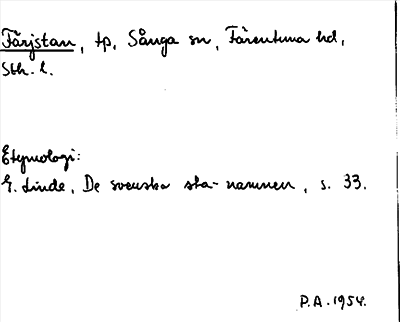 Färjstan, tp, Sånga sn, Färentuna hd,
Sth. l.
Etymologi:
G. Linde, De svenska sta-namnen, s. 33.
P.A. 1954.